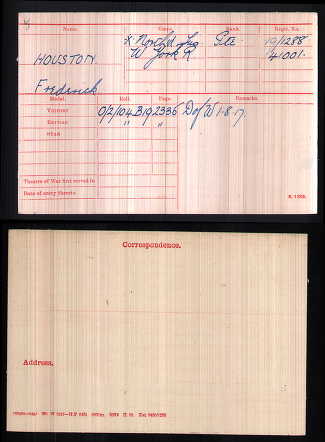 Name. Corps. Rank. Regtl. No.
X North'd Fus Pte 19/1288
HOUSTON W York R 41001.
Frederick
Medal. Roll. Page. Remarks.
Victory O/2/104 B19 2336 D of W 1-8-17.
British " "
Star
Theatre of War first served in
Date of entry therein
K. 1380.
Correspondence.
Address.